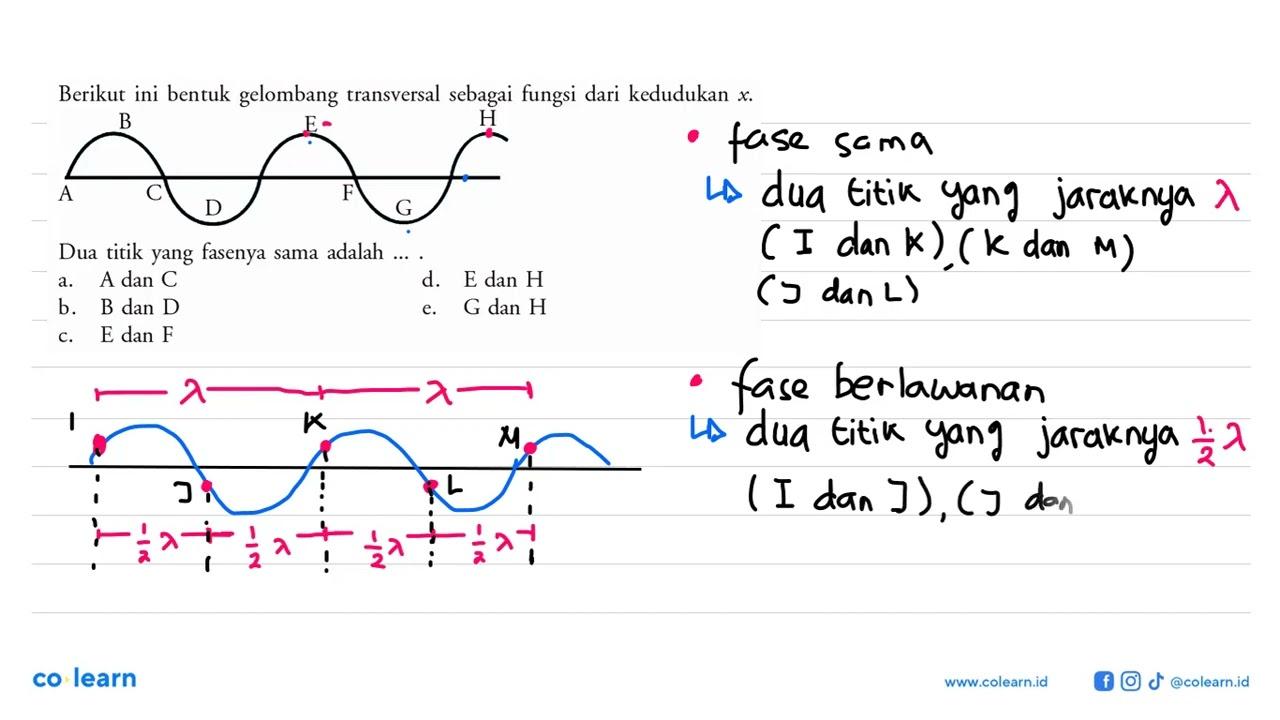 Berikut ini bentuk gelombang transversal sebagai fungsi dari kedudukan x.
B
E
H
A
C
D
F
G
Dua titik yang fasenya sama adalah ... .
a. A dan C
b. B dan D
c. E dan F
d. E dan H
e. G dan H
λ
λ
I
K
M
J
L
1/2 λ
1/2 λ
1/2 λ
1/2 λ
• fase sama
↳ dua titik yang jaraknya λ
(I dan K), (K dan M)
(J dan L)
• fase berlawanan
↳ dua titik yang jaraknya 1/2 λ
(I dan J), (J dan
co learn
www.colearn.id
@colearn.id